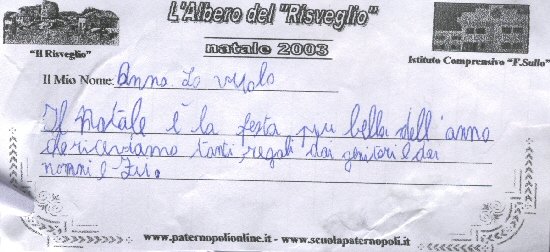 L'Albero del "Risveglio"
natale 2003
"Il Risveglio"
Istituto Comprensivo "F.Sullo"
Il Mio Nome: Anna Lo
Il Natale è la festa più bella dell'anno
che riceviamo tanti regali dai genitori e dai
nonni e Zii.
www.paternopolionline.it - www.scuolapaternopoli.it